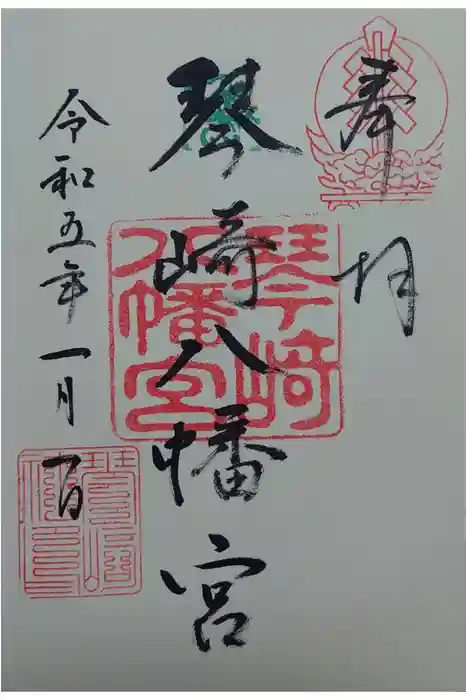 奉拝
琴崎八幡宮
琴崎
八幡宮
令和五年一月一日